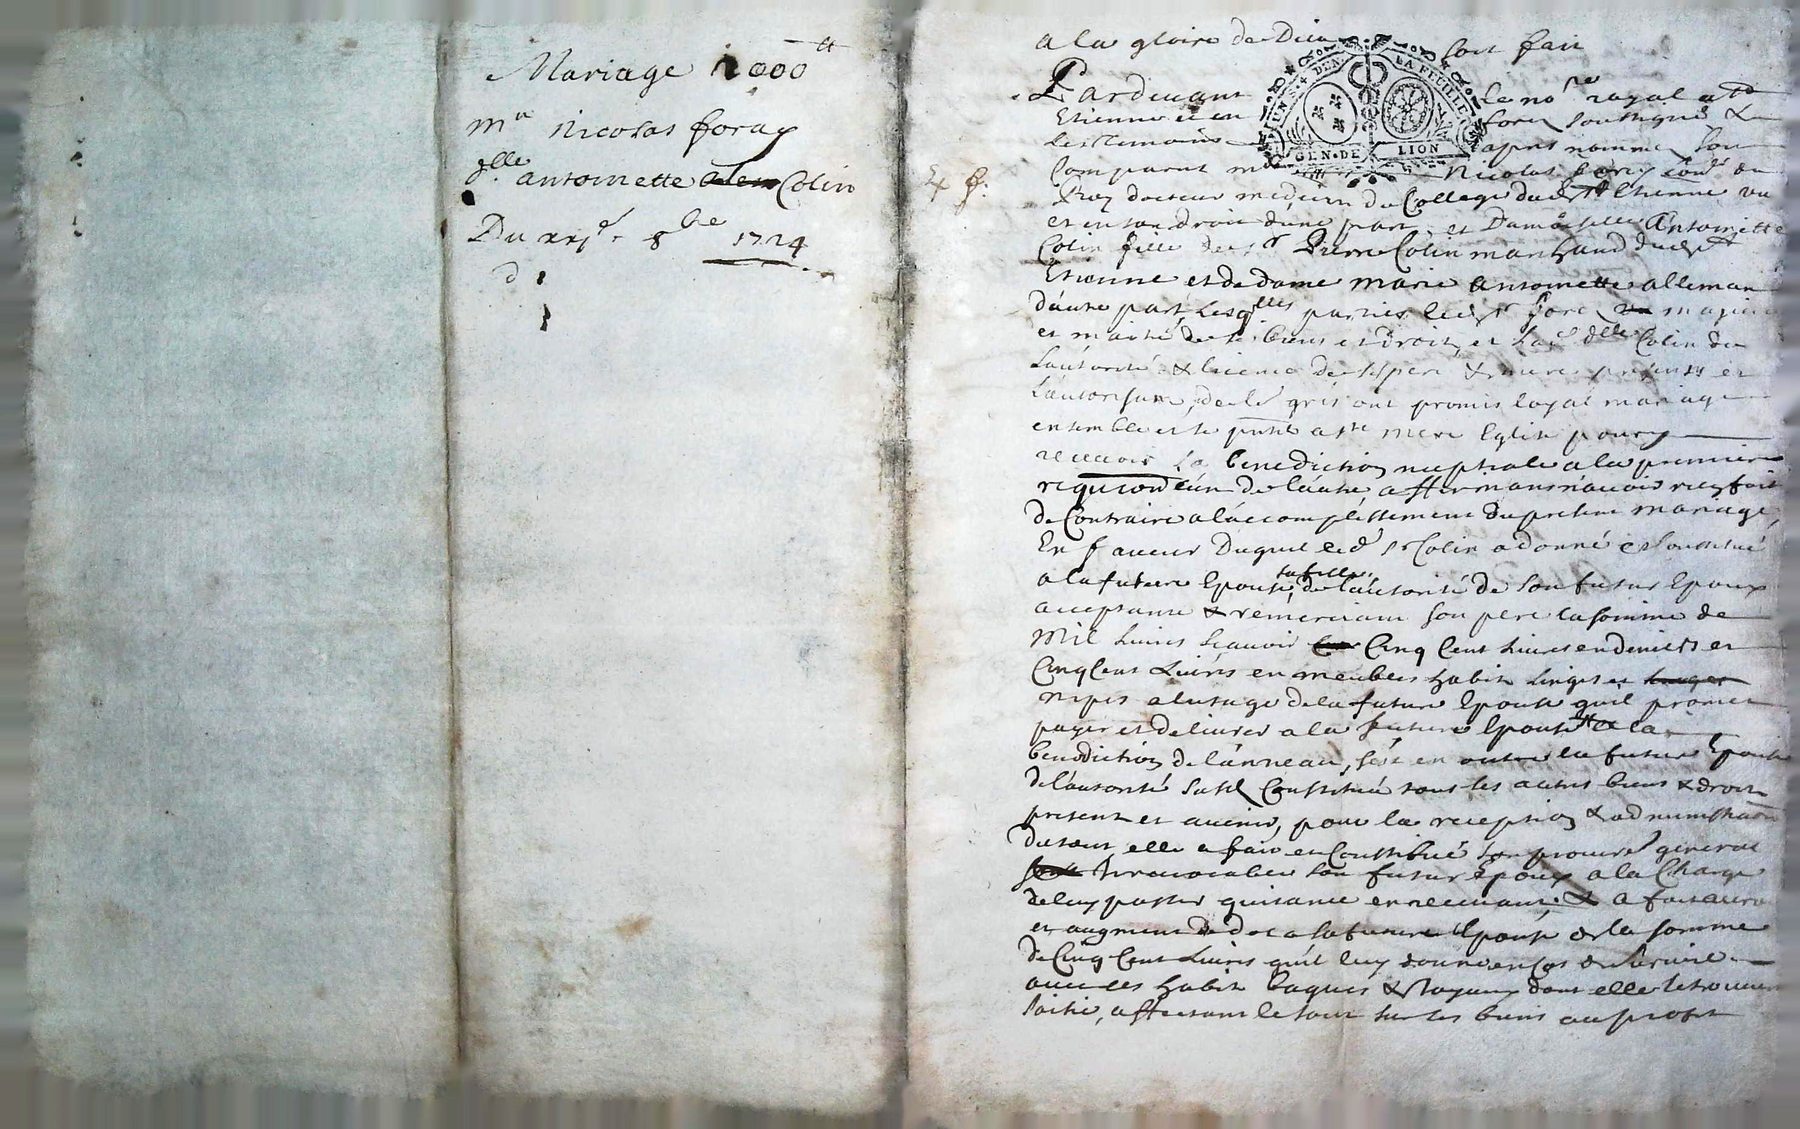 Mariage 1000ᵗᵗ
Mʳ Nicolas foray
dˡˡᵉ antoinette Colin
Du xxjᵉ 8bre 1724
A la gloire de Dieu soit fait
Pardevant le noʳᵉ royal a Sᵗ
Etienne et en forez soussigné &
les temoins apres nommes son
comparut mʳ Nicolas forey conˢ du
Roy docteur medecin du College dud Sᵗ Etienne
et en son droit dune part, et Damoiselle Antoinette
Colin fille de sʳ Pierre Colin marchand dud Sᵗ
Etienne et de dame marie antoinette alleman
dautre part, lesqˡˡᵉˢ parties led sʳ forey majeur
et maitre de ses biens et droits, et lad dˡˡᵉ Colin de
lautorité & licence de ses pere & mere presents et
lautorisant, de le gré ont promis loyal mariage
ensemble et se pnter a sᵗᵉ mere Eglise pour y
recevoir la benediction nuptiale a la premiere
requion lun de lautre, affirmans navoir rien fait
de Contraire a laccomplissement du present mariage,
En faveur Duquel led sʳ Colin a donné et Constitué
a la future Epouse sa fille, de lautorité de son futur Epoux
acceptante & remerciant son pere la somme de
Mil livres scavoir Cinq Cent livres en deniers et
Cinq Cent Livres en meubles habits linges et linges
nipes a lusage de la future Epouse quil promet
payer et delivrer a la future Epouse a la
benediction de lanneau, sest en outre la future Epouse
de lautorité susd Constitué tous ses autres biens & droits
present et avenir, pour la reception & administraon
du tout elle a fait et Constitué son procureʳ general
& irrevocable son futur epoux a la Charge
de luy passer quitance en recevant. & a fait
et augment de dot a sa future Epouse de la somme
de Cinq Cent Livres quil luy donne en Cas de survie
avec les habits bagues & Joyaux dont elle se trouvera
saisie, affectant le tout sur ses biens au profit
GEN. DE LION